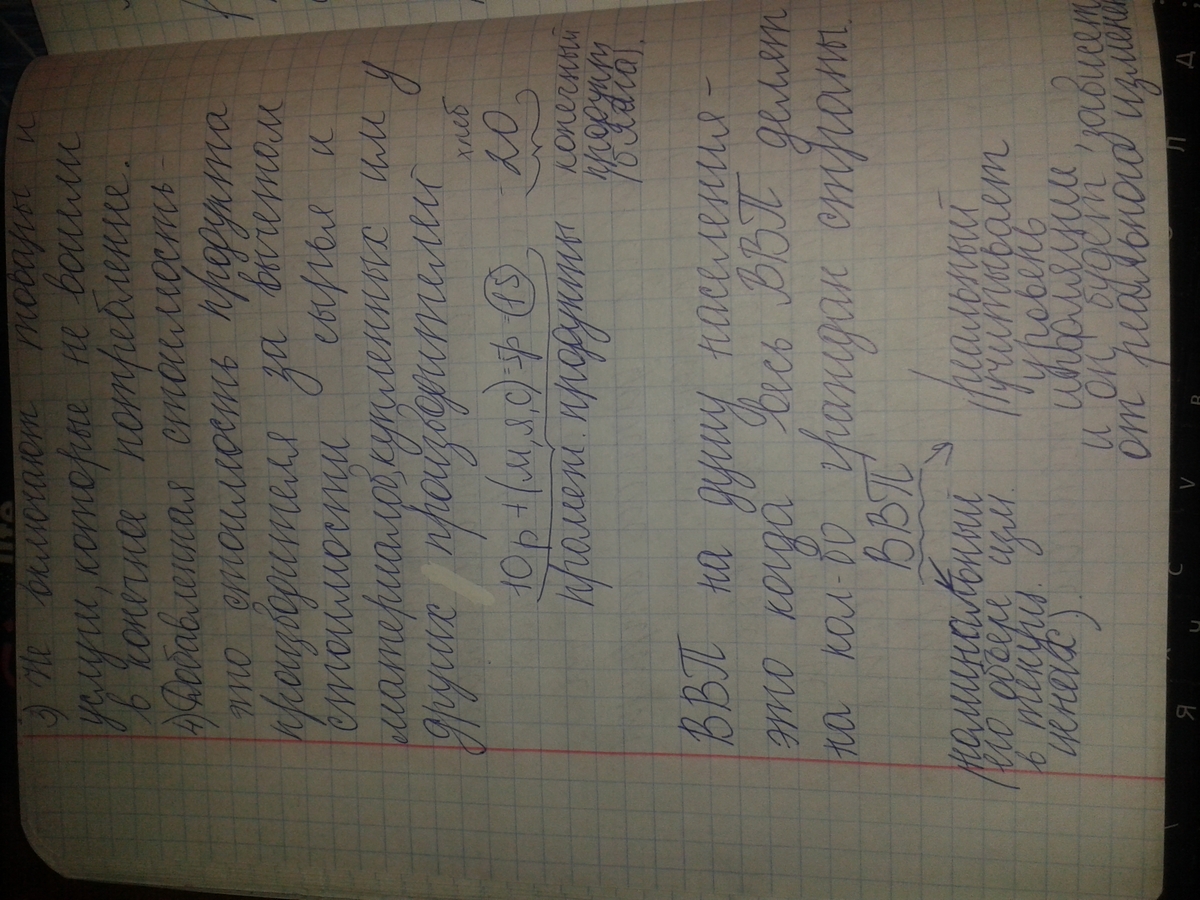 3) Не включают товары и
услуги, которые не вошли
в конечное потребление.
4) Добавленная стоимость -
это стоимость продукта
производителя за вычетом
стоимости сырья и
материалов купленных им у
других производителей
хлеб
10р + (м, я, с) = 5р - 15 - 20
промеж. продукты
конечный
продукт
ВВП на душу населения -
это когда весь ВВП делят
на кол-во граждан страны.
ВВП
номинальный
(его объем изм.
в текущих
ценах).
реальный
(учитывает
уровень
инфляции,
и он будет зависеть
от реального измен